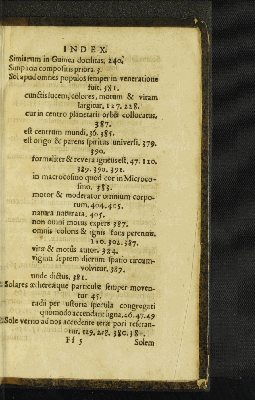 INDEX.
Simiarum in Guinea docilitas, 240.
Simplicia compositis priora. 3.
Sol apud omnes populos semper in veneratione
fuit. 381.
cunctis lucem, colores, motum & vitam
largitur, 127. 228.
cur in centro planetarii orbis collocatus,
387.
est centrum mundi, 36. 385.
est origo & parens spiritus universi, 379.
390.
formaliter & revera igneus est, 47. 120.
389. 390. 391.
in macrocosmo quod cor in Microco-
smo. 383.
motor & moderator omnium corpo-
rum, 404. 405.
natura naturata, 405.
non omni motus expers 387.
omnis coloris & ignis fons perennis,
120. 302. 387.
vitæ & motus autor. 384.
viginti septem dierum spatio circum-
volvitur, 387.
unde dictus, 381.
Solares æthereæque particulæ semper moven-
tur 45.
radii per ustoria specula congregati
quomodo accendant ligna, 26. 47. 49
Sole verno ad nos accedente terræ pori reseran-
tur, 129. 228. 380. 381.
Ff 5 Solem